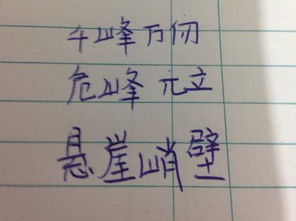 千峰万仞
危峰元立
悬崖峭壁